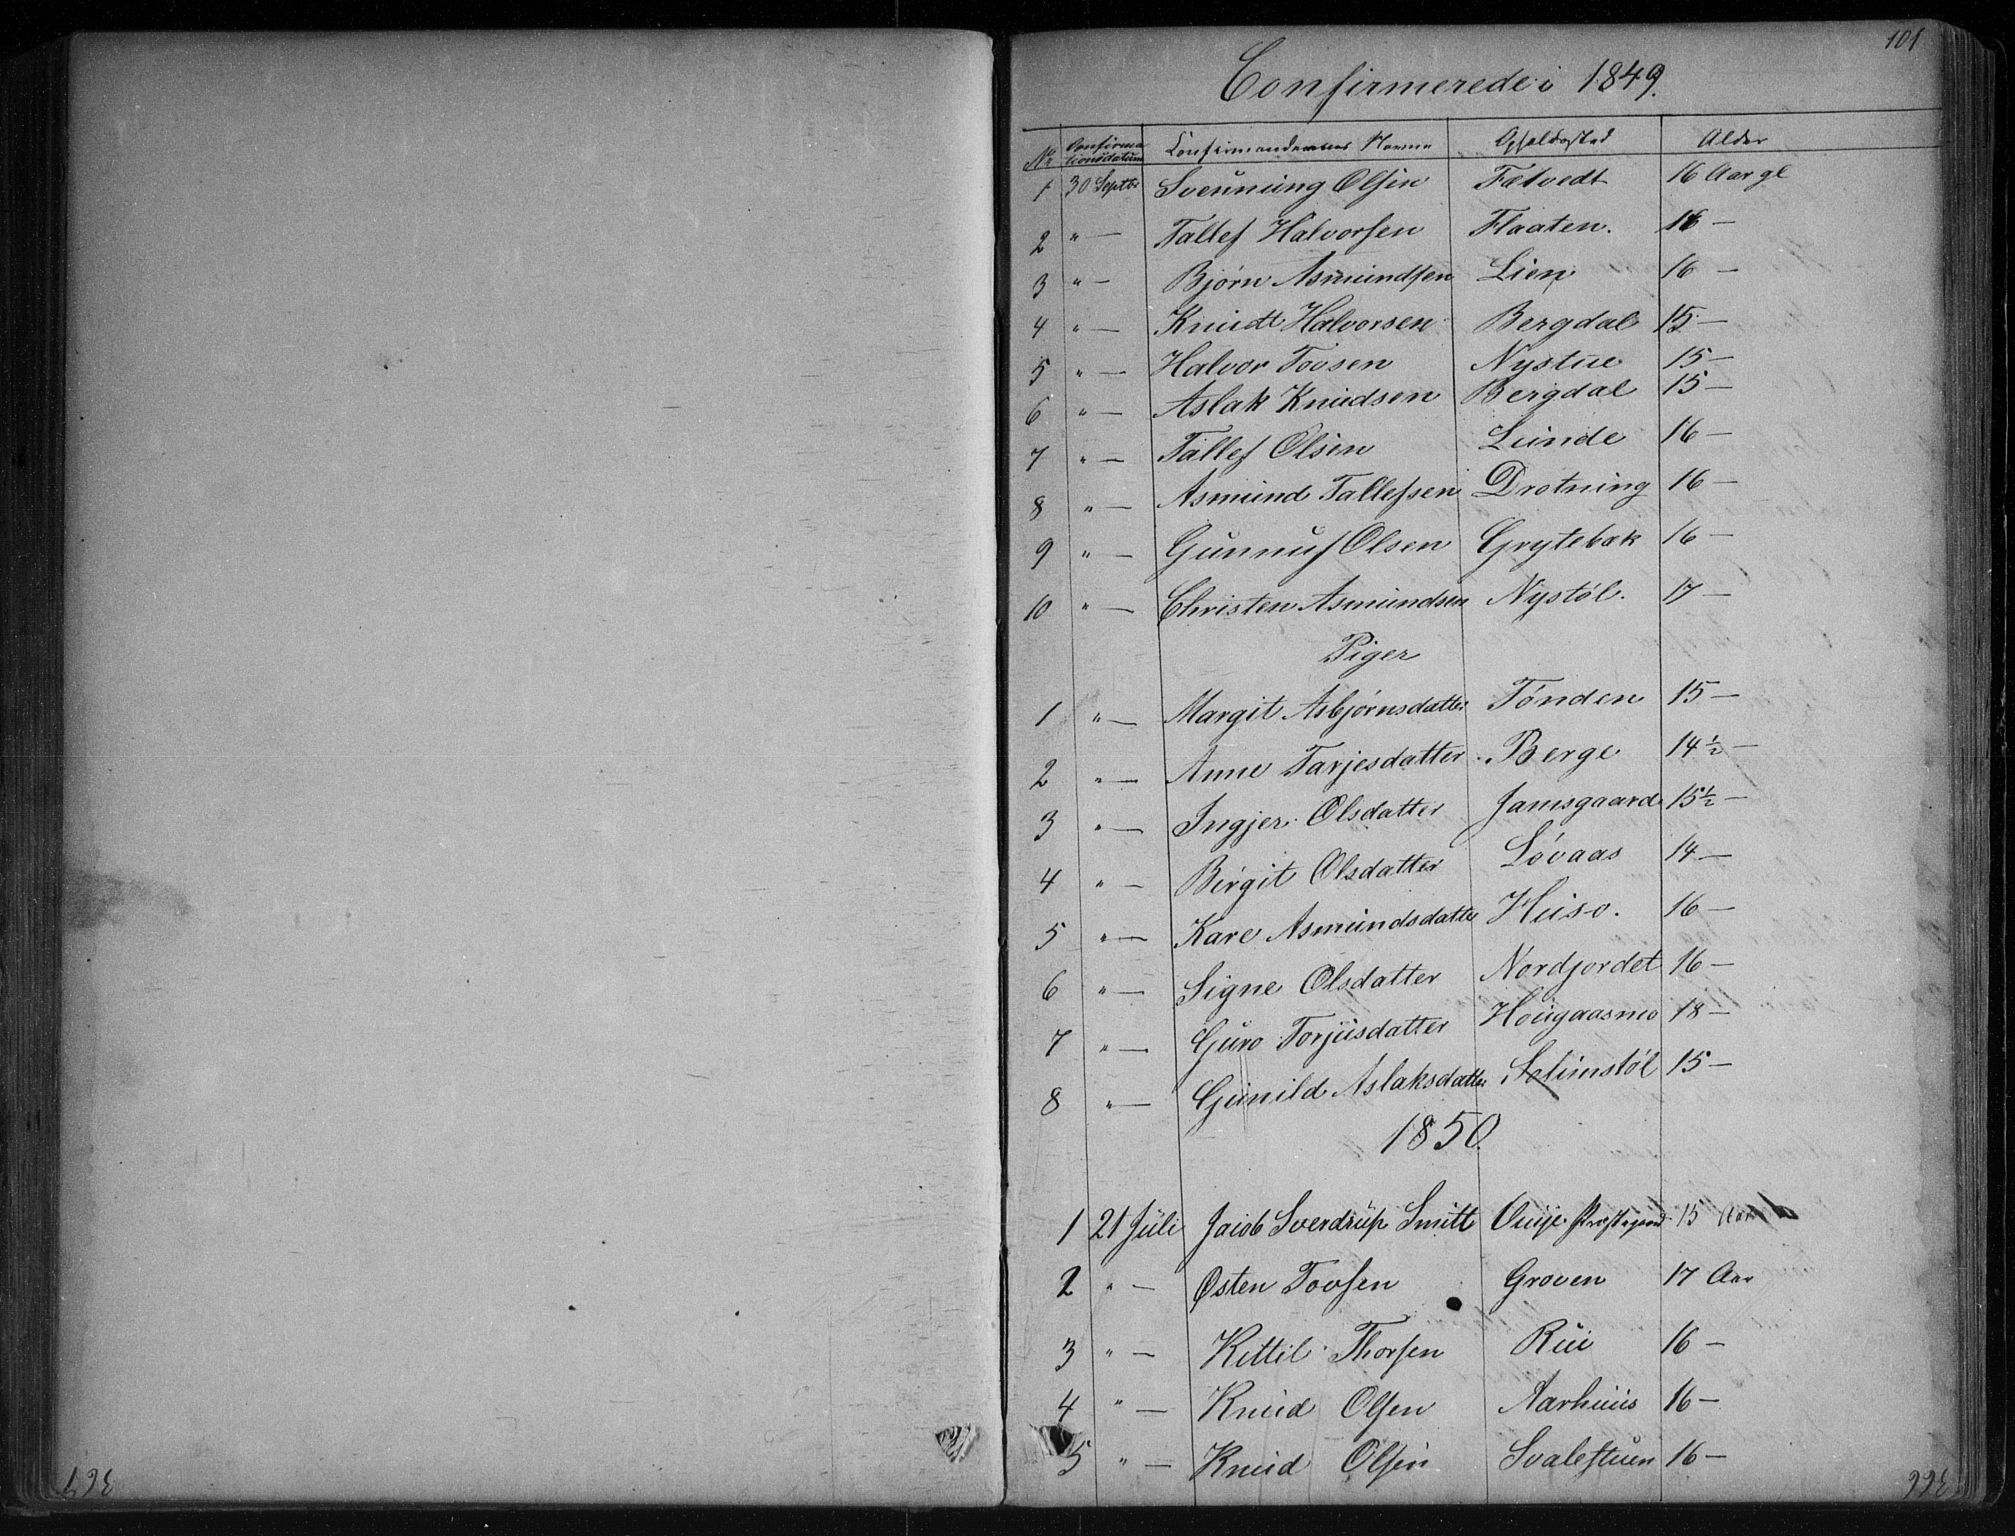 101
Confirmerede i 1849.
No Confirmationsdatum Confirmandernes Navne Opholdssted Alder
1 30 Septbr Sveinung Olsen Fætvedt 16 Aar gl
2 " — Tallef Halvorsen Flaaten. 16 —
3 " — Bjørn Asmundsen Lien 16 —
4 " — Knudt Halvorsen Bergdal 15 —
5 " — Halvor Tovsen Nystue 15 —
6 " — Aslak Knudsen Bergdal 15 —
7 " — Tallef Olsen Lunde 16 —
8 " — Asmund Tallefsen Drotning 16 —
9 " — Gunnuf Olsen Grytebæk 16 —
10 " — Christen Asmundsen Nystøl. 17 —
Piger
1 " — Margit Asbjørnsdatter Tønden 15 —
2 " — Anne Tarjesdatter Berge 14 1/2 —
3 " — Ingjer Olsdatter Jamsgaard 15 1/2 —
4 " — Birgit Olsdatter Løvaas 14 —
5 " — Kare Asmundsdatter Huso. 16 —
6 " — Signe Olsdatter Nordjordet 16 —
7 " — Guro Torjusdatter Hougaasmo 18 —
8 " — Gunild Aslaksdatter 15 —
1850.
1 21 Juli Jacob Sverdrup Smitt Præstegaard 15 Aar
2 " — Østen Tovsen Groven 17 Aar
3 " — Kittil Thorsen Rui 16 —
4 " — Knud Olsen Aarhuus 16 —
5 " — Knud Olsen Svalestuen 16 —